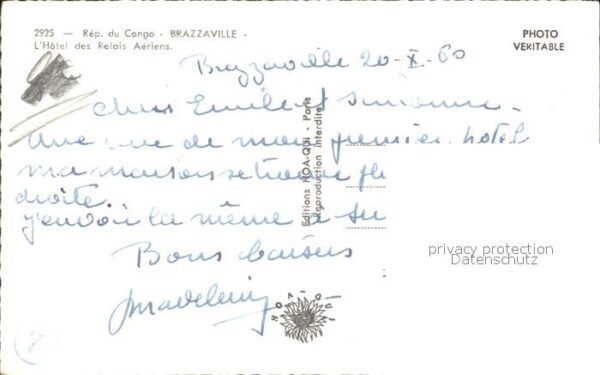 2925 — Rép. du Congo - BRAZZAVILLE -
L'Hôtel des Relais Aériens.
PHOTO
VERITABLE
Brazzaville 20-X-60
chers Emile et Simonne.
Une vue de mon premier hotel
ma maison se trouve
droite.
j'envoie la même à
Bons baisers
Madeleine
Editions HOA-QUI - Paris
Reproduction interdite
HOA-QUI
privacy protection
Datenschutz
7